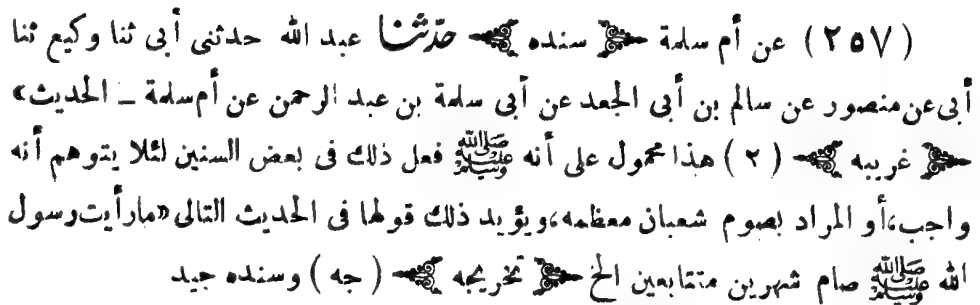 (٢٥٧) عن أم سلمة ﴿سنده﴾ حدّثنا عبد الله حدثنى أبى ثنا وكيع ثنا
أبى عن منصور عن سالم بن أبى الجعد عن أبى سلمة بن عبد الرحمن عن أم سلمة ــ الحديث»
﴿غريبه﴾ (٢) هذا محمول على أنه ﷺ فعل ذلك فى بعض السنين لئلا يتوهم أنه
واجب، أو المراد بصوم شعبان معظمه، ويؤيد ذلك قولها فى الحديث التالى «ما رأيت رسول
الله ﷺ صام شهرين متتابعين الخ ﴿تخريجه﴾ (جه) وسنده جيد